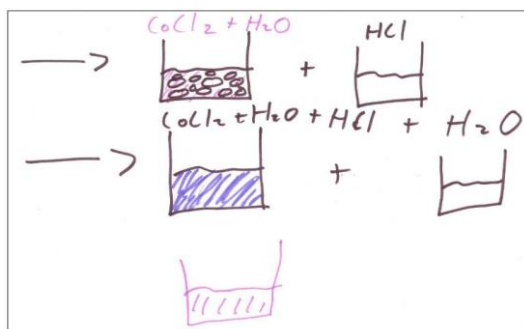 CoCl2 + H2O
+ HCl
CoCl2 + H2O + HCl + H2O
+